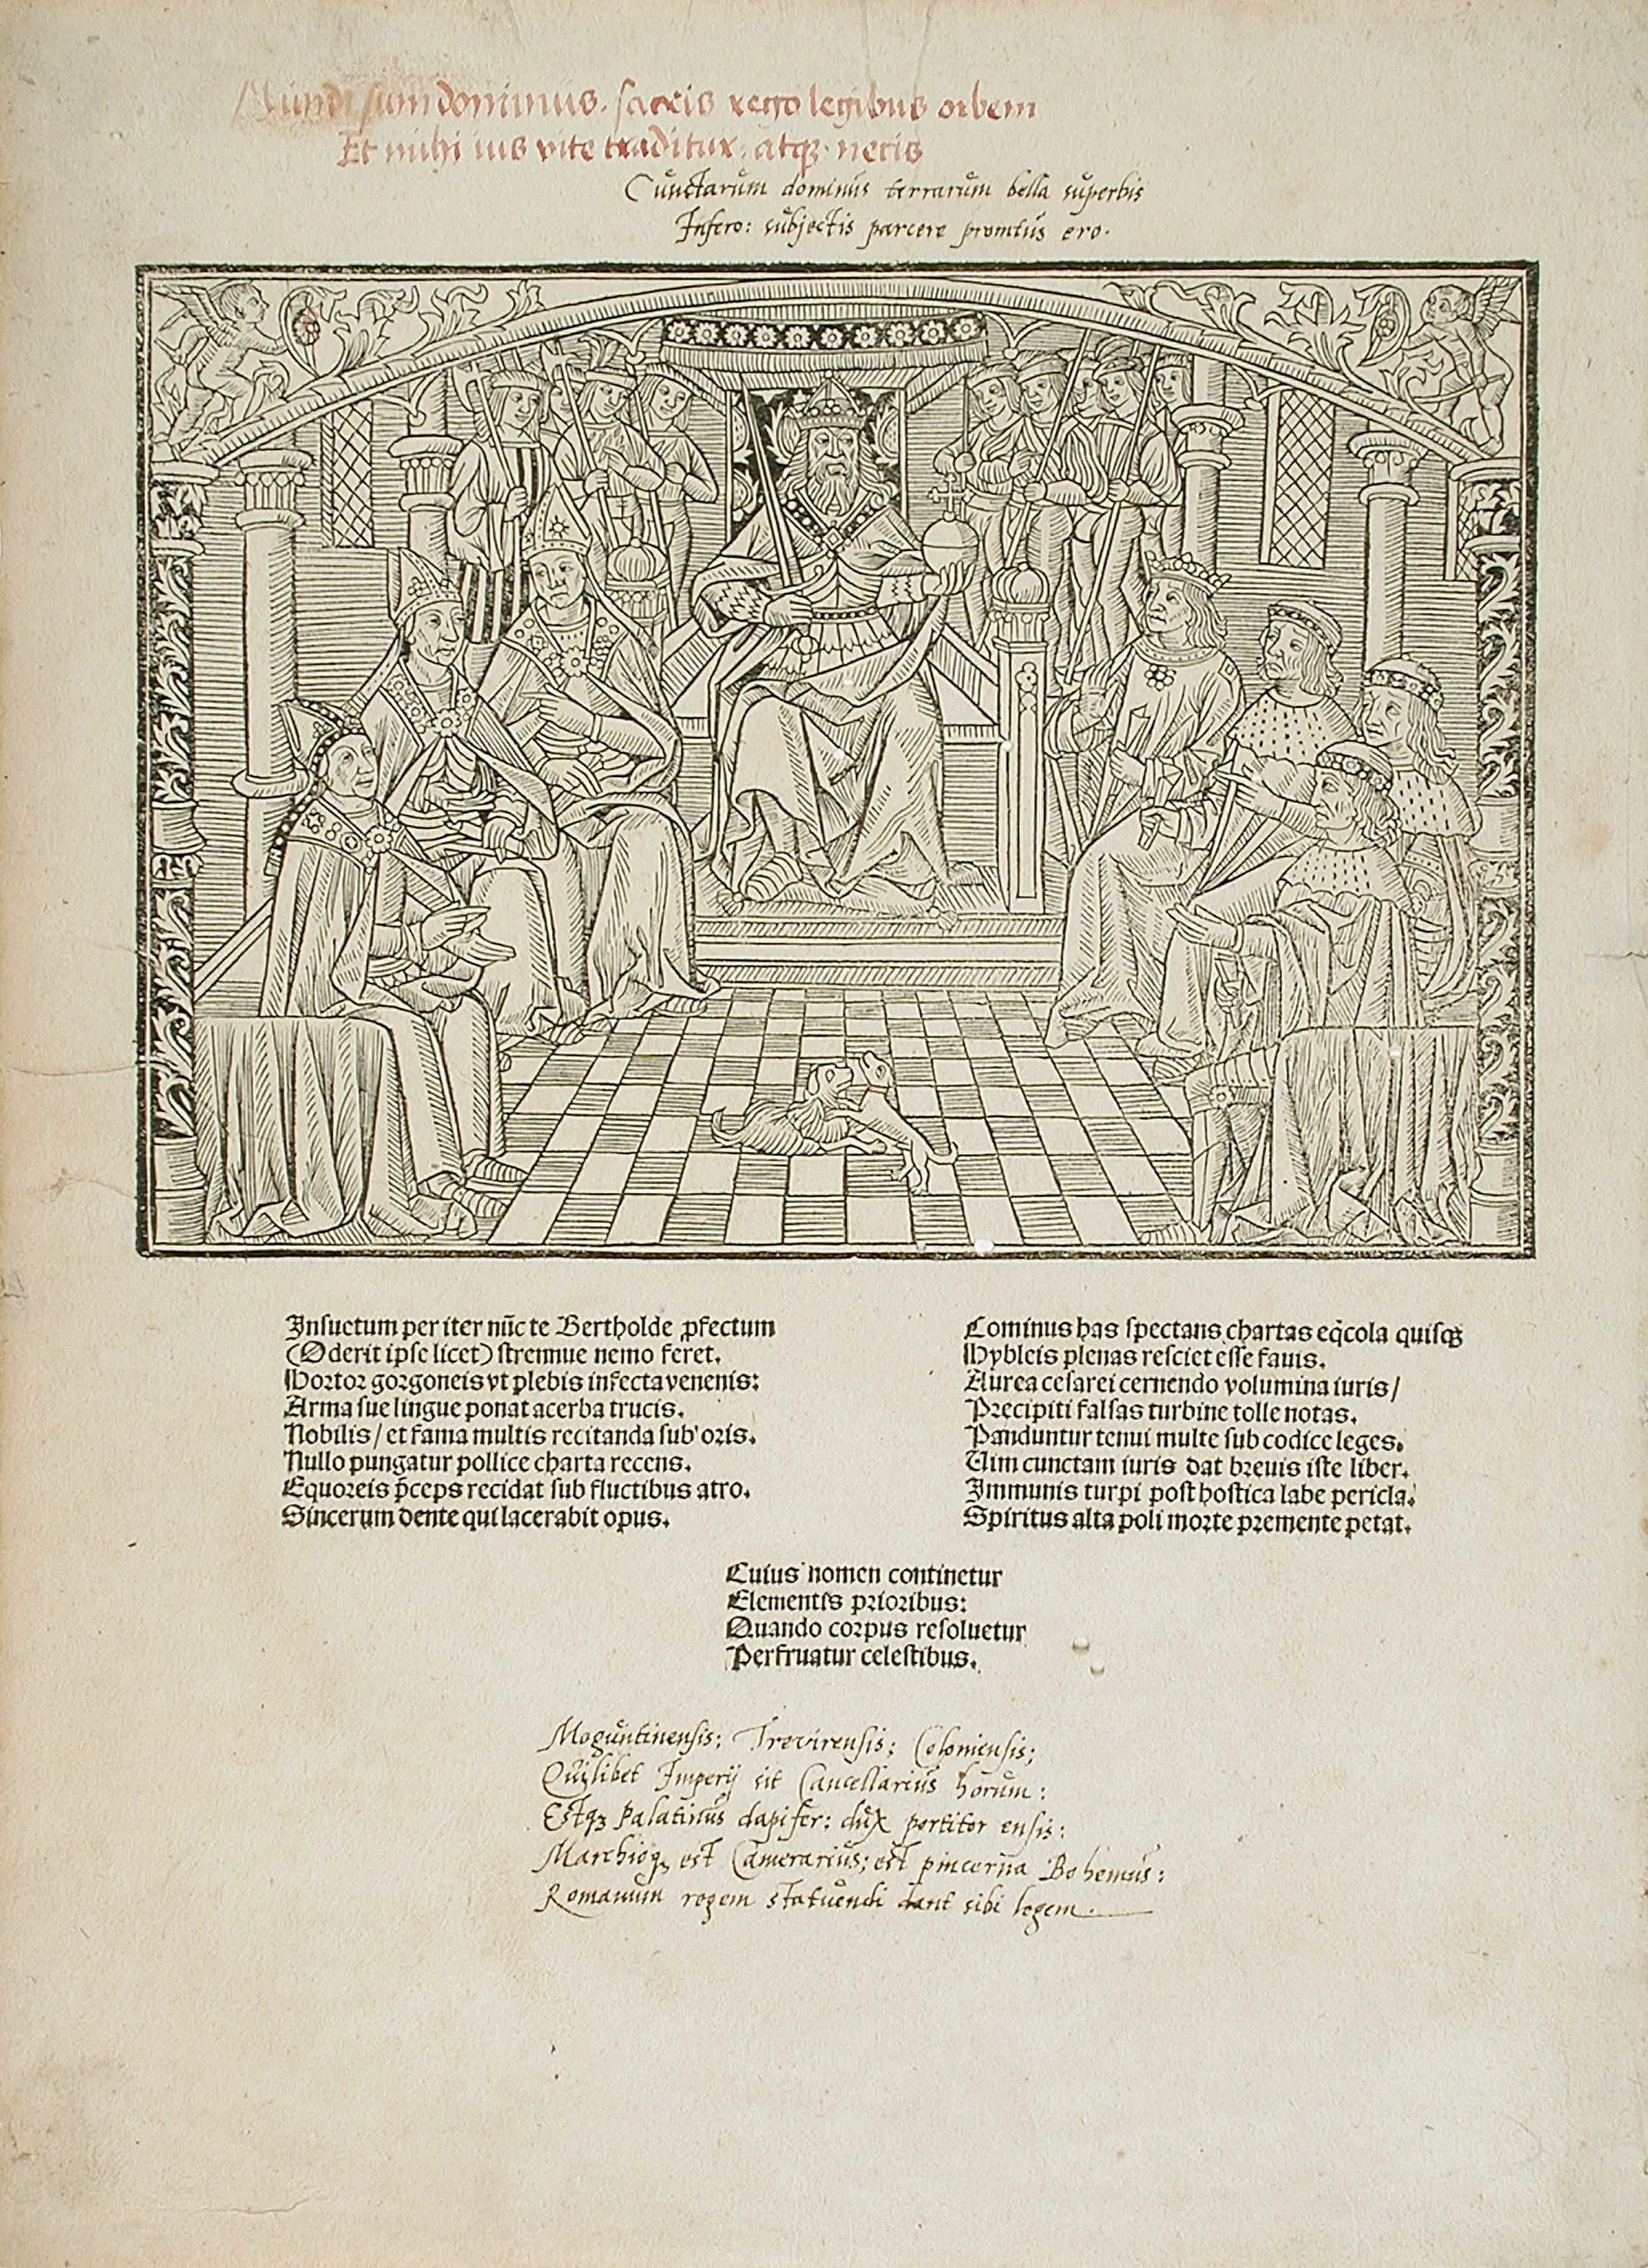 Mundi sum dominus. sacris rego legibus orbem
Et mihi ius vite traditur: atqꝫ necis
Cunctarum dominus terrarum bella superbis
Infero: subjectis parcere promtus ero.
Insuetum per iter nūc te Bertholde ꝓfectum
(Oderit ipse licet) strennue nemo feret.
Hortor gorgoneis vt plebis infecta venenis:
Arma sue lingue ponat acerba trucis.
Nobilis / et fama multis recitanda sub' oris.
Nullo pungatur pollice charta recens.
Equoreis p̄ceps recidat sub fluctibus atro.
Sincerum dente qui lacerabit opus.
Cominus has spectans chartas eq̇cola quisqꝫ
Hybleis plenas resciet esse fauis.
Aurea cesarei cernendo volumina iuris /
Precipiti falsas turbine tolle notas.
Panduntur tenui multe sub codice leges.
Uim cunctam iuris dat breuis iste liber.
Immunis turpi post hostica labe pericla.
Spiritus alta poli morte premente petat.
Cuius nomen continetur
Elementis prioribus:
Quando corpus resoluetur
Perfruatur celestibus.
Moguntinensis; Trevirensis; Coloniensis;
Quilibet Imperij sit Cancellarius horum:
Estqꝫ Palatinus dapifer: dux portitor ensis:
Marchioqꝫ est Camerarius; est pincerna Bohemus:
Romanum regem statuendi dant sibi legem.